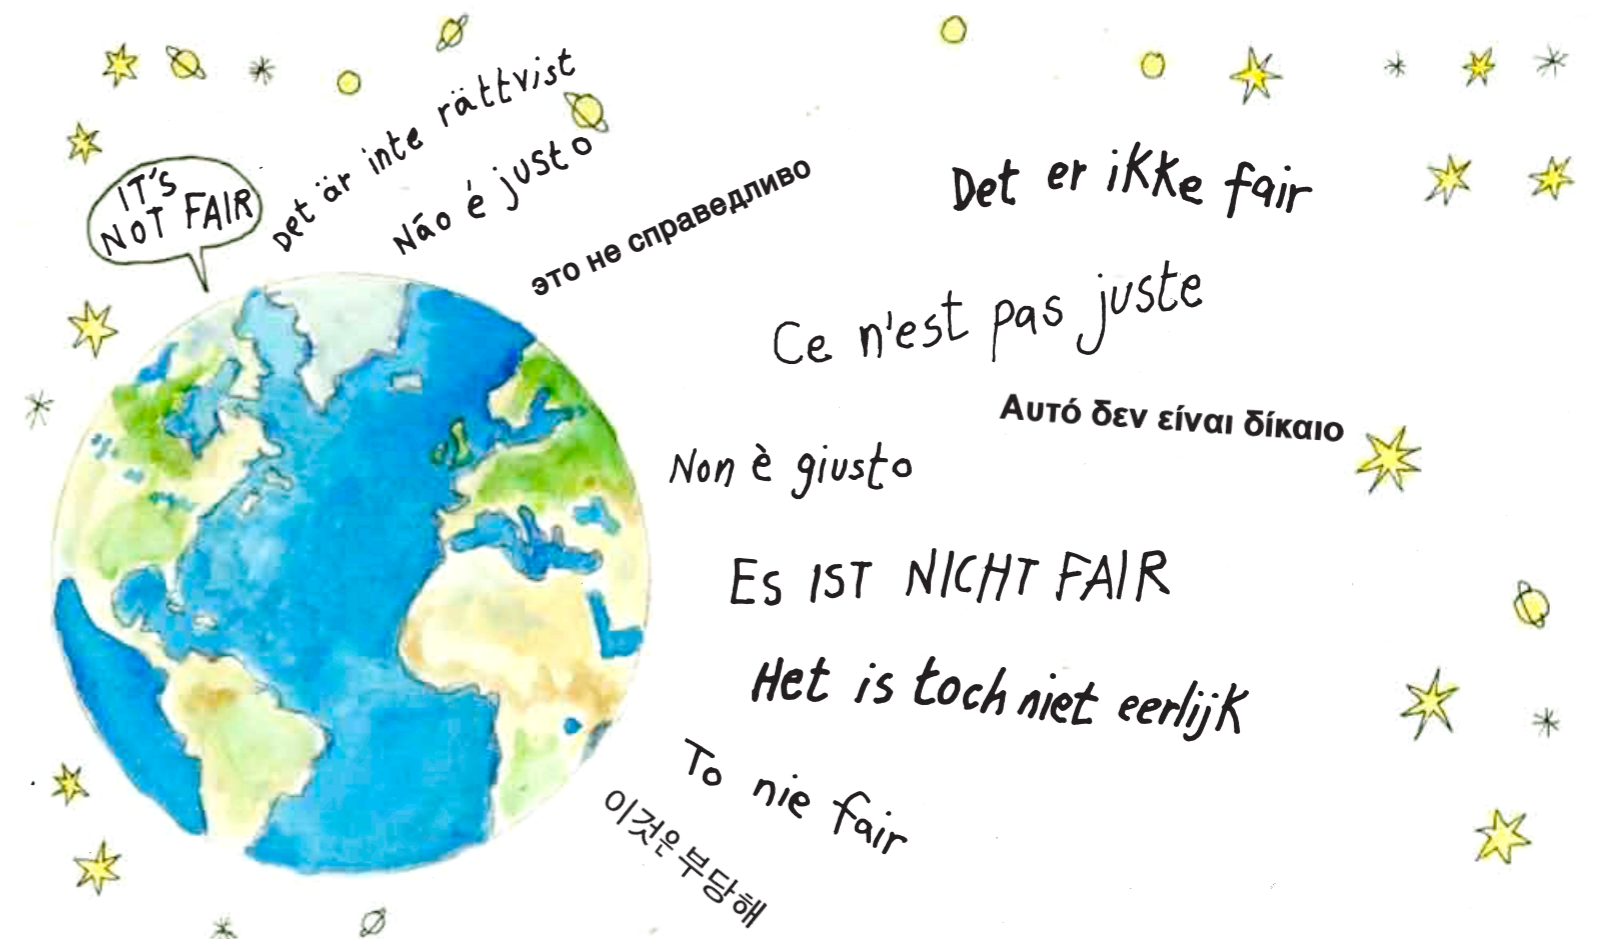 IT'S
NOT FAIR
Det är inte rättvist
Não é justo
это не справедливо
Det er ikke fair
Ce n'est pas juste
Αυτό δεν είναι δίκαιο
Non è giusto
ES IST NICHT FAIR
Het is toch niet eerlijk
To nie fair
이것은 부당해